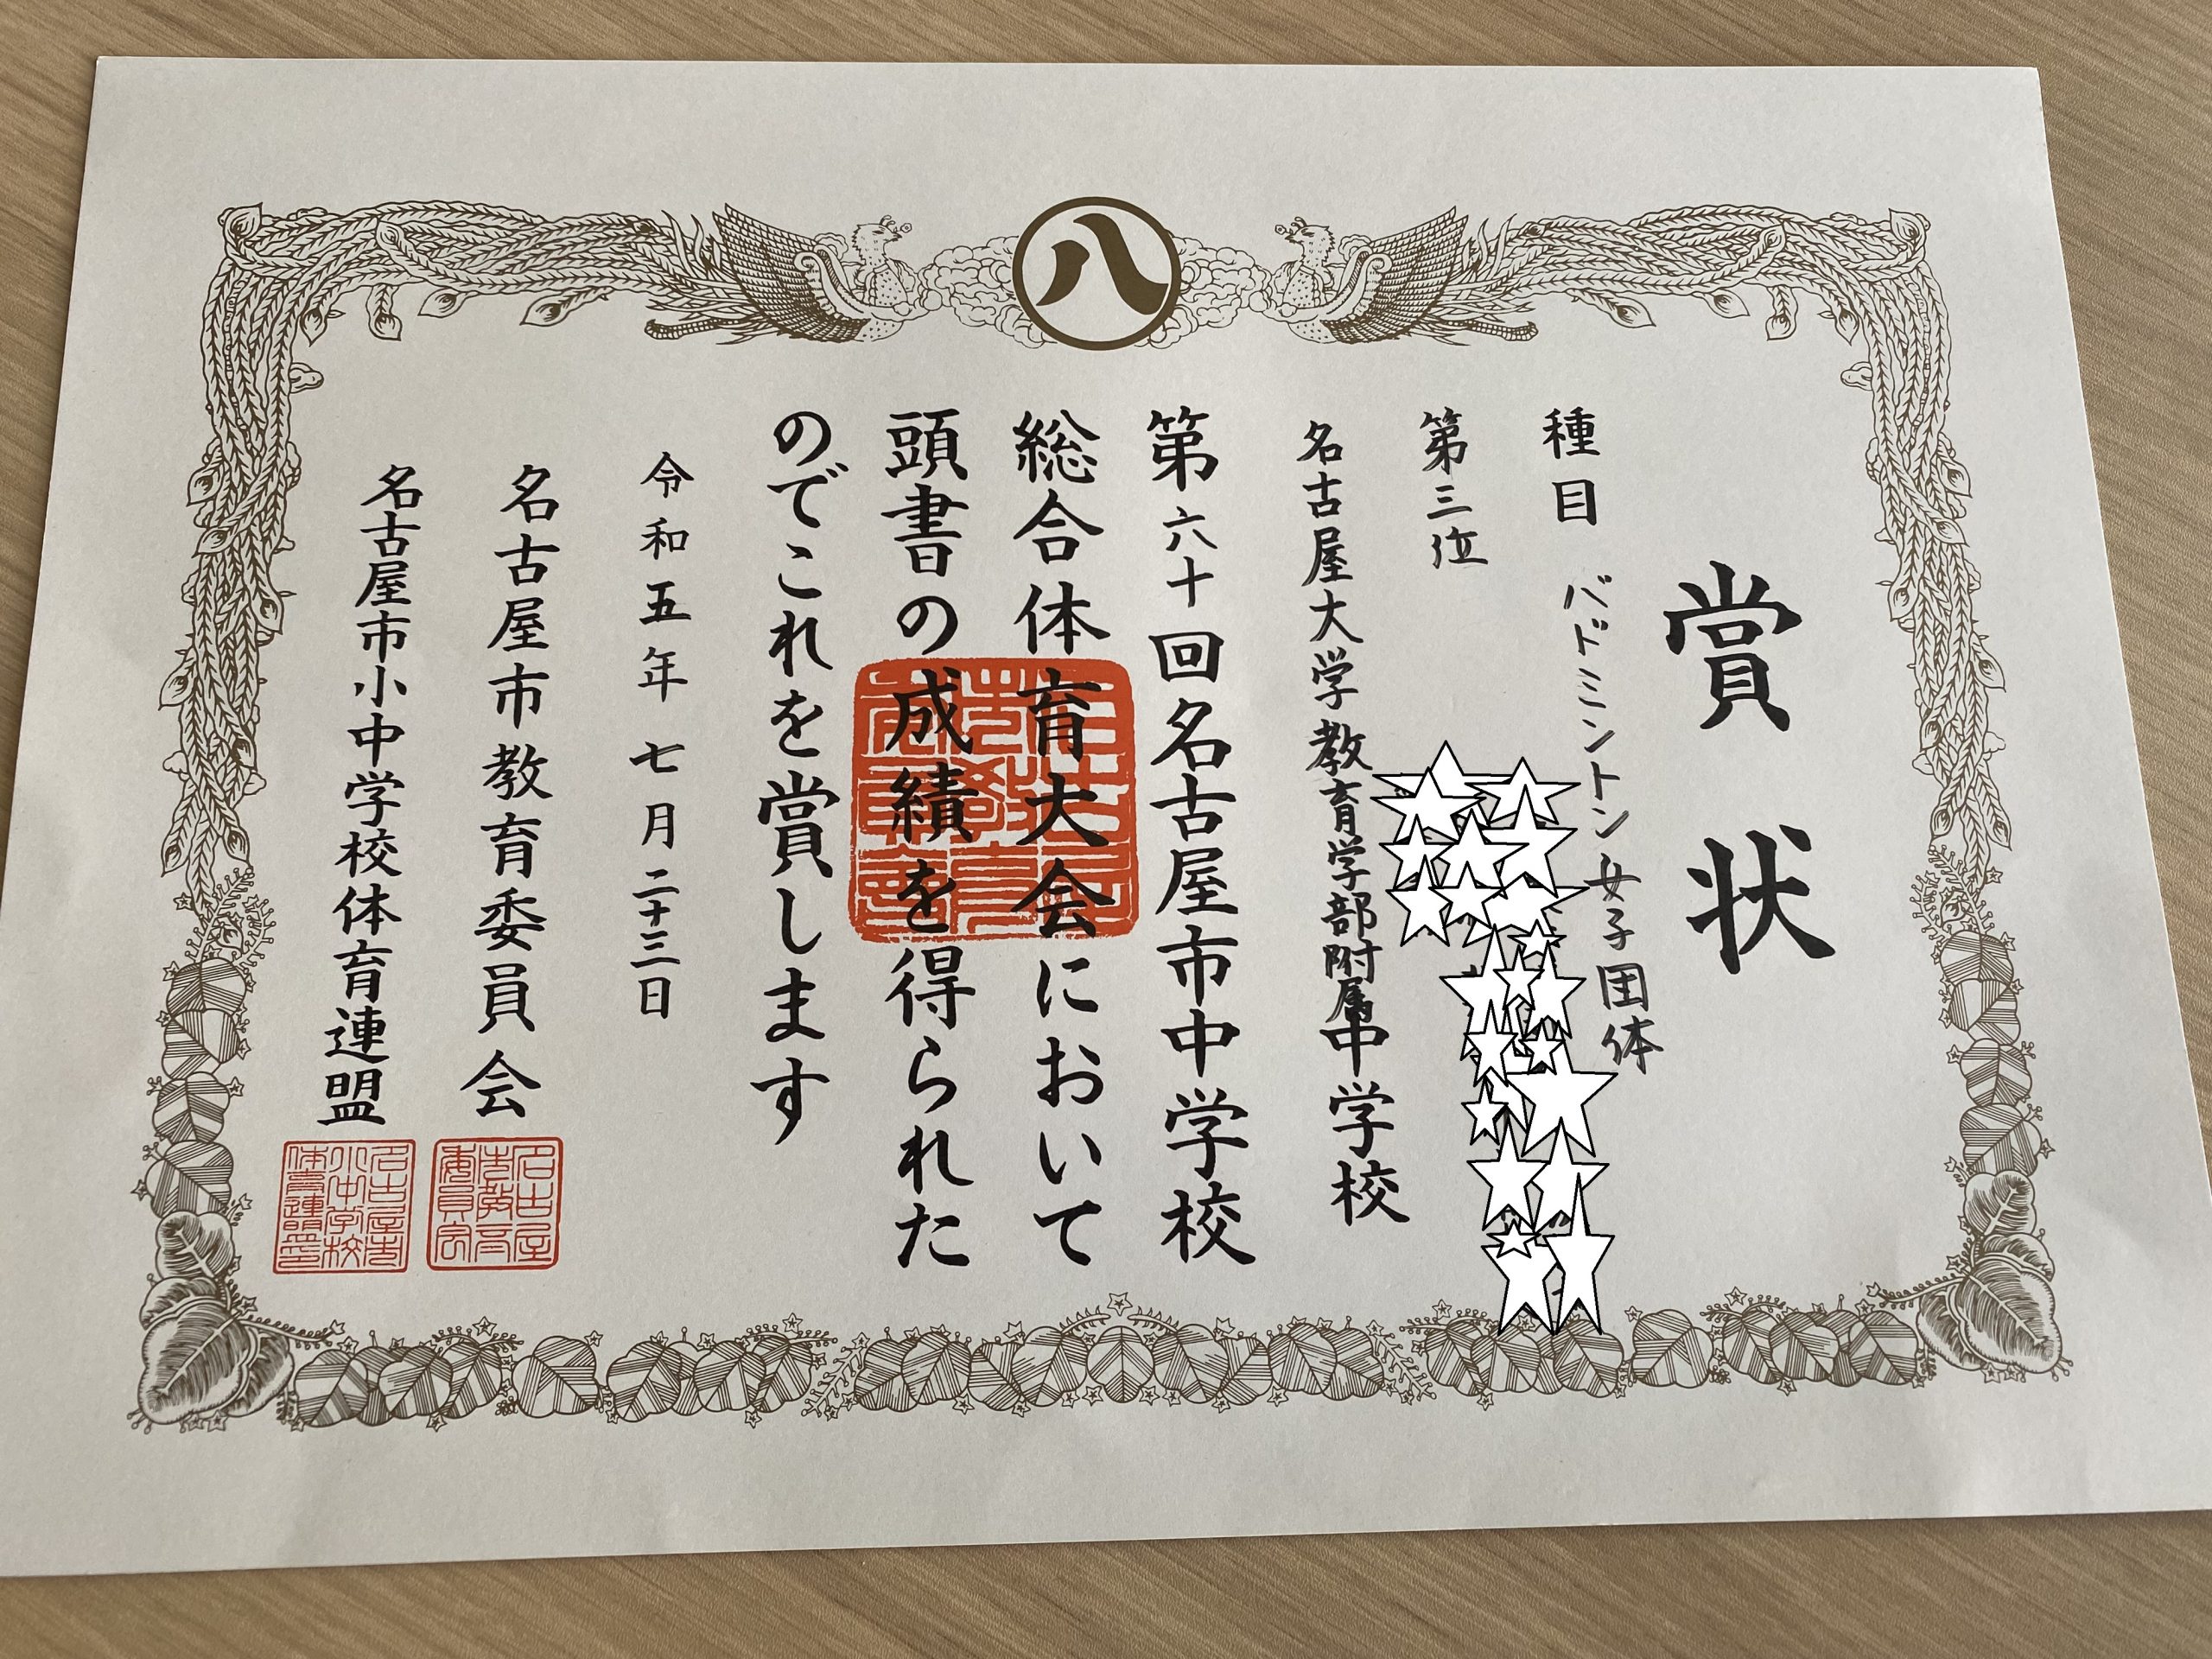 八
賞状
種目 バドミントン女子団体
第三位
名古屋大学教育学部附属中学校
第六十回名古屋市中学校
総合体育大会において
頭書の成績を得られた
のでこれを賞します
令和五年七月二十三日
名古屋市教育委員会
名古屋市小中学校体育連盟